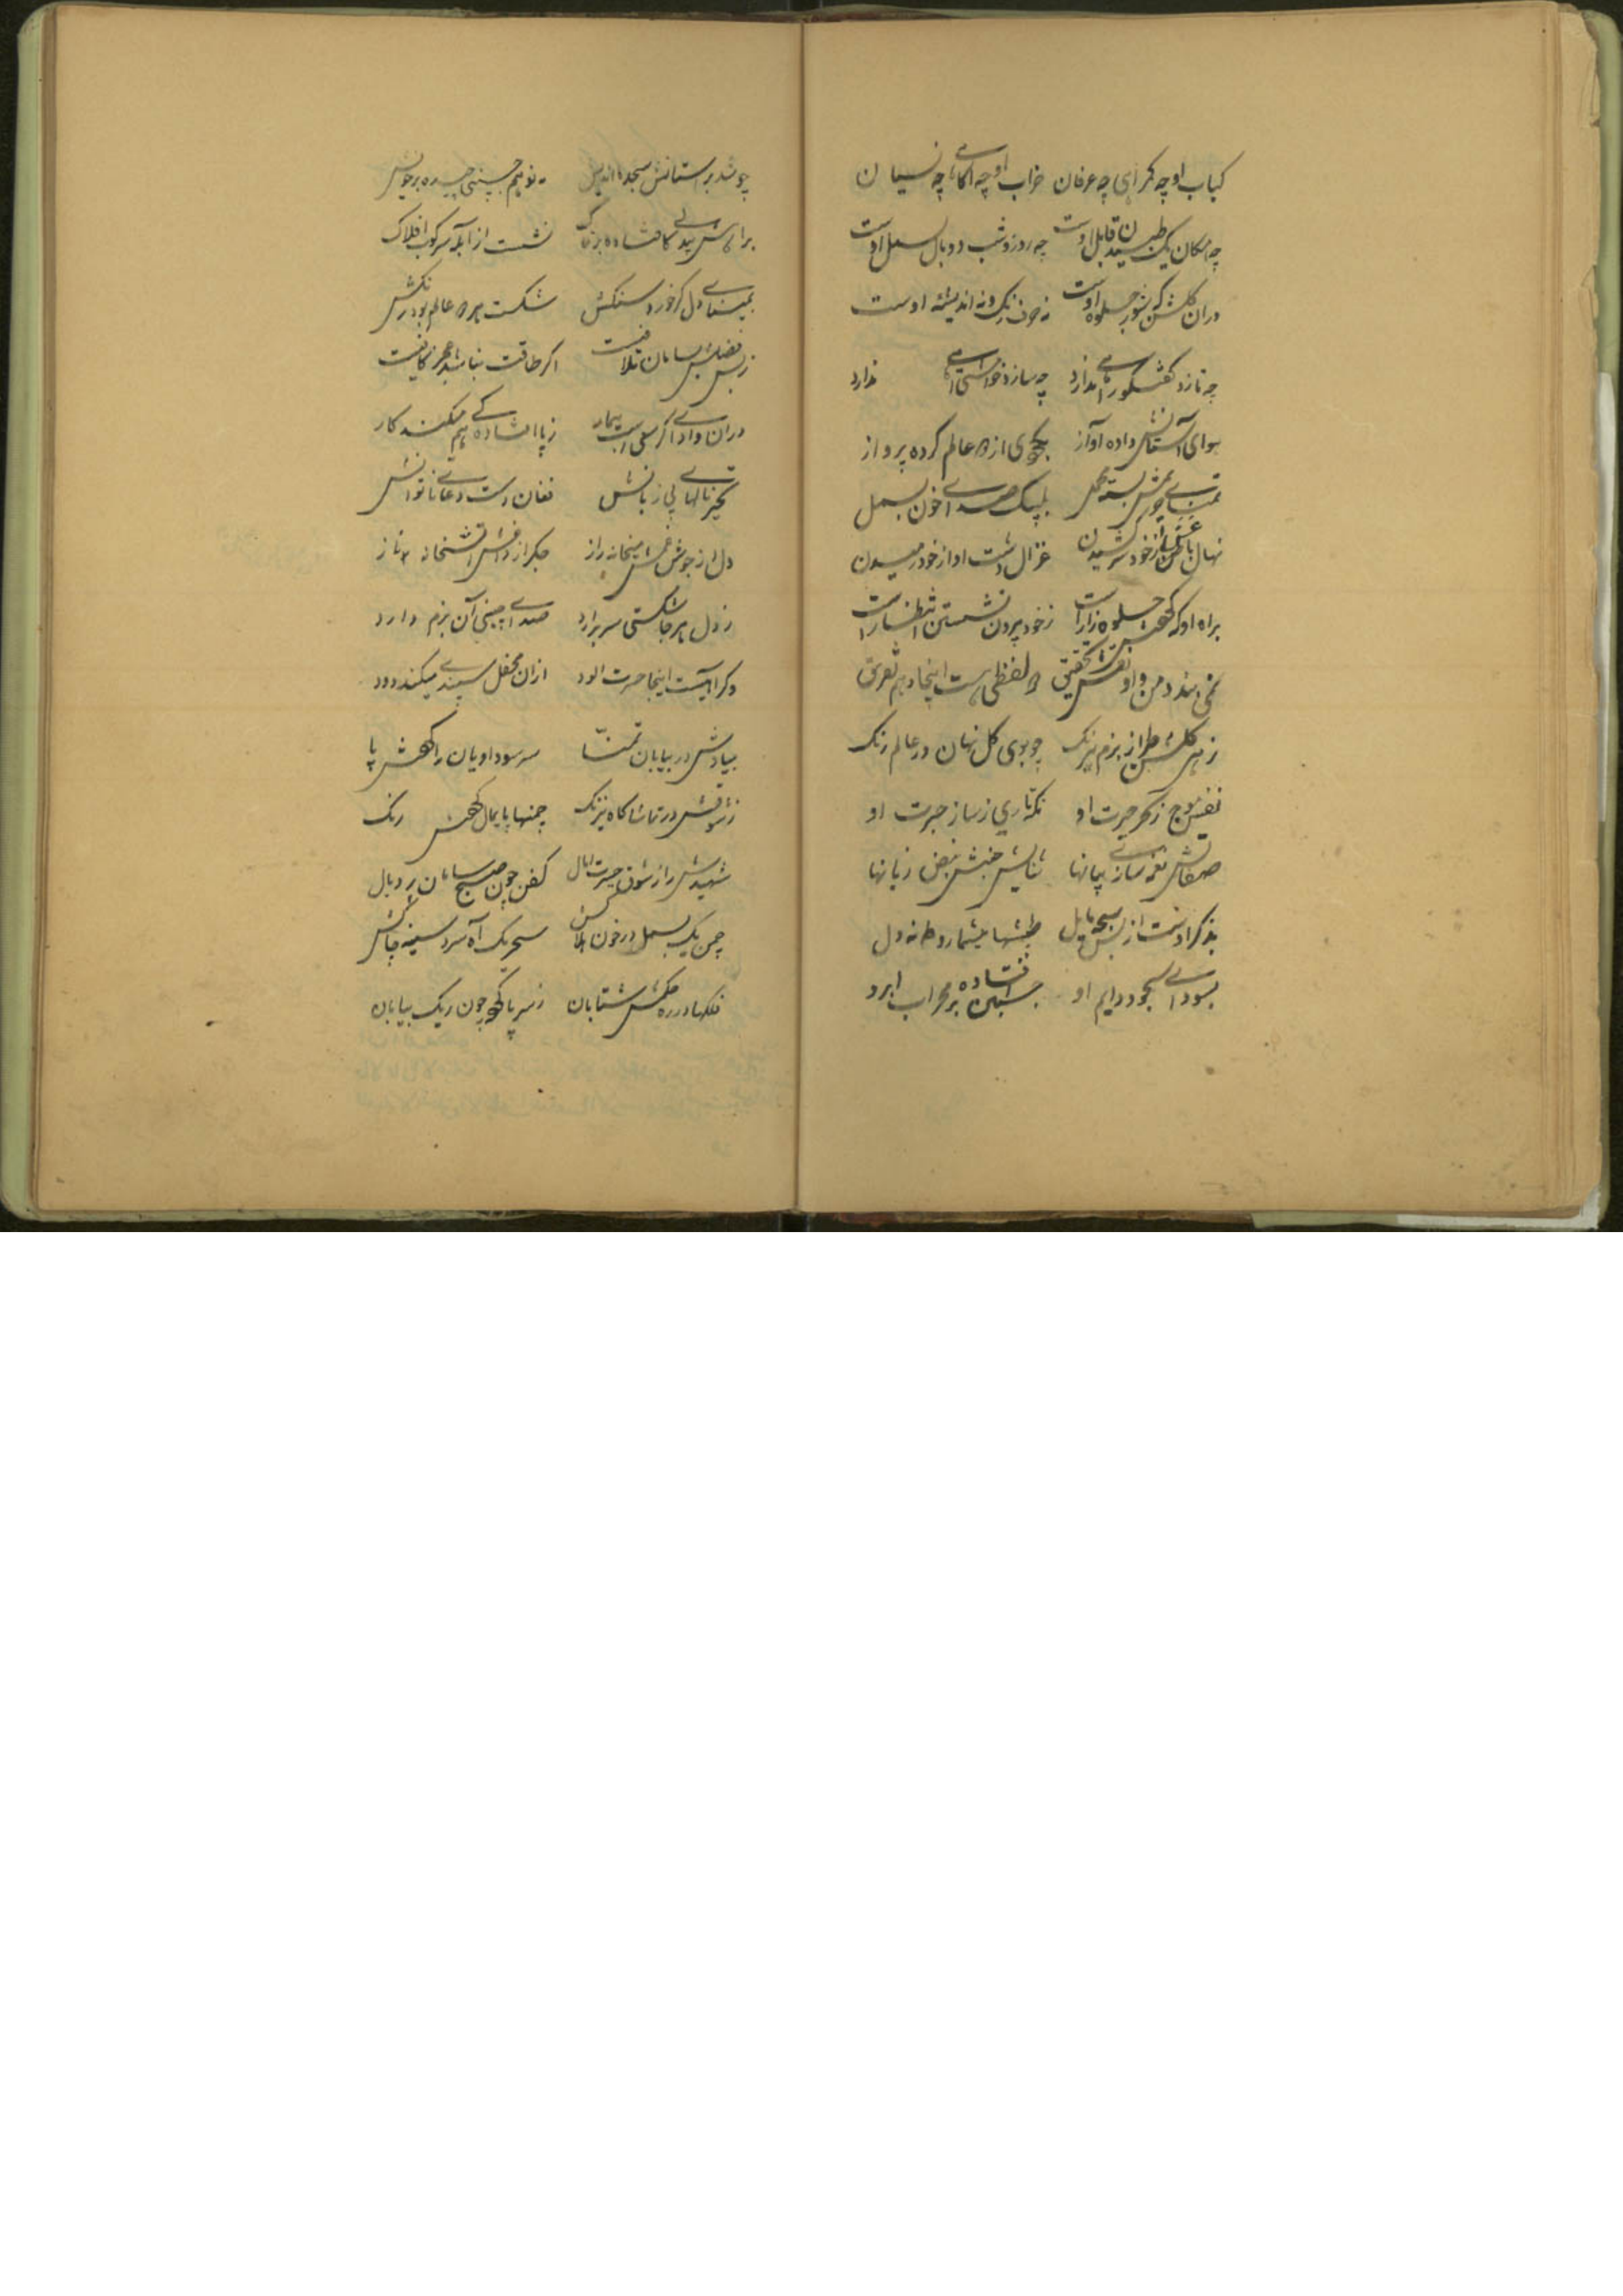 کباب او چه گمراهی چه عرفان خراب او چه آگاهی چه نسیان
چه امکان یک طپیدن قابل اوست چه روز و شب دو بال بسمل اوست
دران گلشن که شور جلوه اوست نه حرف رنگ و نه اندیشه اوست
چه نازد گفتگو راهی ندارد چه سازد خواهش آهی ندارد
هوای آستانش داده آواز بکوی از عالم کرده پرواز
تمنای غمش بسته محمل بلبیک صدای خون بسمل
نهال باغش از خود سر کشیدن غزال دشت او از خود رمیدن
براه او که جلوه زار است ز خود بیرون نشستن انتظار است
نمی بندد من و او نقش تحقیق لفظی هست اینجا و هم تفریق
زهی گلشن طراز بزم نیرنگ چو بوی گل نهان در عالم رنگ
نفس موج ز بحر حیرت او نگه تاری ز ساز حیرت او
صفاتش نغمه ساز بیانها ثنایش جنبش نبض زبانها
بذکر اوست از بس سبحه مایل طپشها میشمارد دانه دل
بسودای سجود دایم او جبین افتاده بر محراب ابرو
چو شد بر آستانش سجده اندیش مه نو هم جبینی چیده بر خویش
براهش بیدلی کافشاده بر خاک نشست از آبله سرکوب افلاک
بمینای دلی گر خورد سنگش شکست هر دو عالم بود رنگش
ز بس فضلش بسامان تلافیست اگر طاقت نباشد عجز کافیست
دران وادی اگر سعی است بیمار ز پا افتادگی هم میکند کار
تحیر نالهای بی زبانش فغان دست دعای ناتوانش
دل از جوش غمش میخانه راز جگر از داغش آتشخانه ناز
ز دل هر جا شکستی سر برآرد صدای چینی آن بزم دارد
وگر آهیست اینجا حسرت آلود ازان محفل سپندی میکند دود
بیادش در بیابان تمنا سر سودائیان را کفش پا
ز شوقش در تماشاگاه نیرنگ چمنها پایمال رنگ
شهیدش را ز شوق حیرت کفن چون صبح سامان پر و بال
چمن یک بسمل در خون سحر یک آه سرد سینه چاکش
فلکها در ره حکمش شتابان ز سر پا کرده چون ریگ بیابان